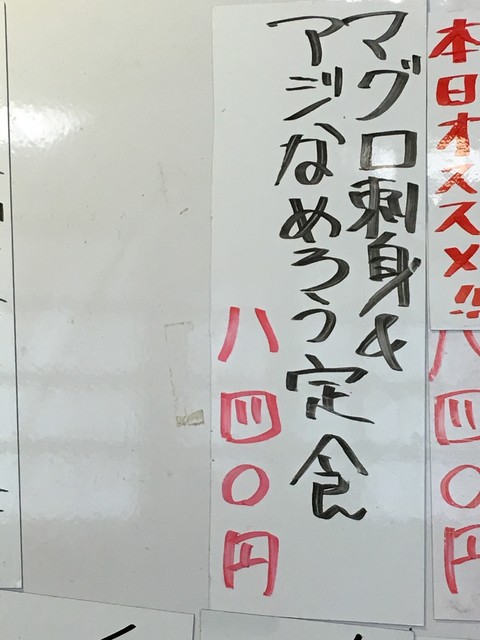 本日オススメ!!
八四〇円
マグロ刺身&
アジなめろう定食
八四〇円